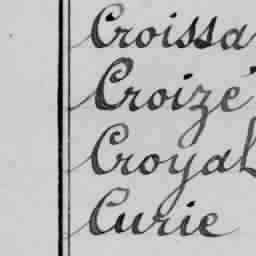 Croissa
Croizé
Croyal
Curie